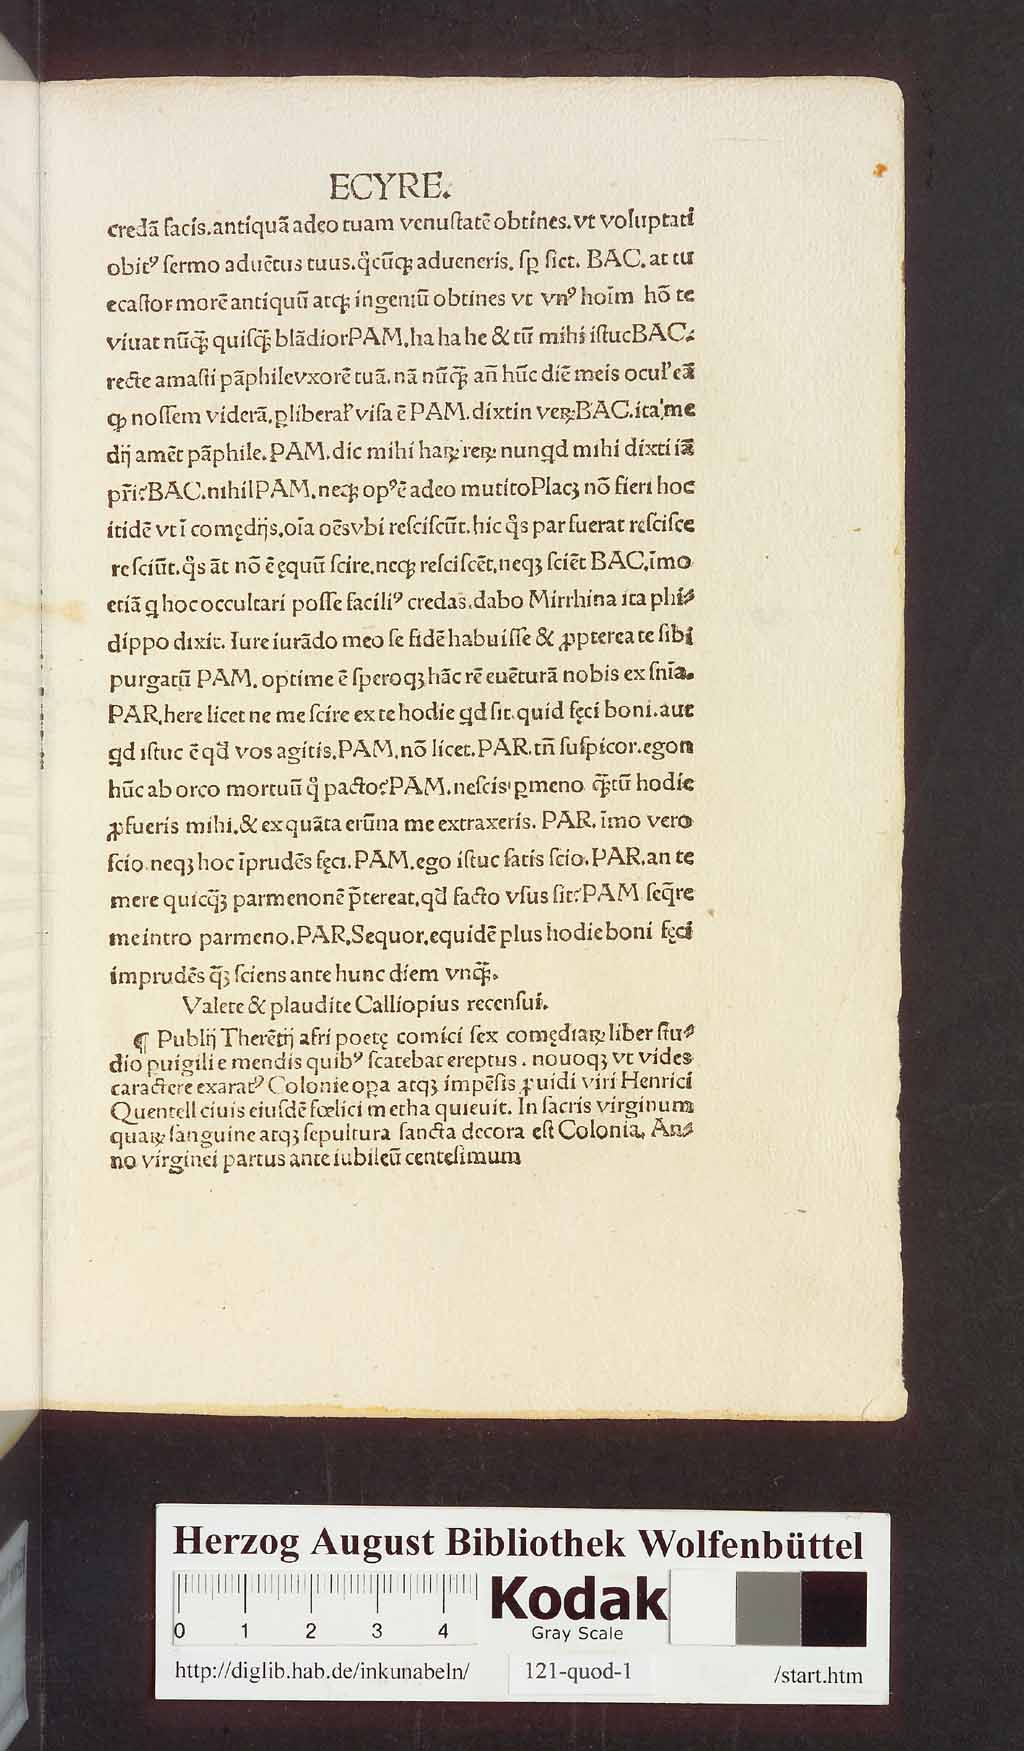 ECYRE.
credã facis.antiquã adeo tuam venuſtatẽ obtines.vt voluptati
obitꝰ ſermo aduẽtus tuus.q̊cũqꝫ adueneris. ſꝑ ſiet. BAC. at tu
ecaſtor morẽ antiquũ atqꝫ ingeniũ obtines vt vnꝰ hoĩm hõ te
viuat nũq̃ꝫ quiſq̃ꝫ blãdiorPAM.ha ha he & tũ mihi iſtucBAC.
recte amaſti pãphilevxorẽ tuã. nã nũq̃ꝫ añ hũc diẽ meis oculꝭ eã
qꝫ noſſem viderã.ꝑliberalꝭ viſa ẽ PAM.dixtin veꝝBAC.ita me
dij amẽt pãphile.PAM.dic mihi haꝝ reꝝ nunqd mihi dixti iã
pr̃i?BAC.nihilPAM.neqꝫ opꝰẽ adeo mutitoPlacꝫ nõ fieri hoc
itidẽ vt ĩ comędijs.oĩa oẽsvbi reſciſcũt.hic q̊s par fuerat reſciſce
reſciũt.q̊s ãt nõ ẽ ęquũ ſcire.neqꝫ reſciſcẽt.neqꝫ ſciẽt BAC.ĩmo
etiã q hoc occultari poſſe faciliꝰ credas.dabo Mirrhina ita phi⸗
dippo dixit. Iure iurãdo meo ſe fidẽ habuiſſe & ꝓpterea te ſibi
purgatũ PAM. optime ẽ ſperoqꝫ hãc rẽ euẽturã nobis ex ſñia.
PAR.here licet ne me ſcire ex te hodie qd ſit.quid fęci boni.aut
qd iſtuc ẽ qd̃ vos agitis.PAM.nõ licet.PAR.tñ ſuſpicor.egon
hũc ab orco mortuũ q̊ pacto?PAM.neſcis ꝑmeno q̃ꝫtũ hodie
ꝓfueris mihi.& ex quãta erũna me extraxeris. PAR.ĩmo vero
ſcio.neqꝫ hoc ĩprudẽs fęci.PAM.ego iſtuc ſatis ſcio.PAR.an te
mere quicq̃ꝫ parmenonẽ p̃tereat.qd̃ facto vſus ſit?PAM ſeq̃re
meintro parmeno.PAR.Sequor.equidẽ plus hodieboni fęci
imprudẽs q̃ꝫ ſciens ante hunc diem vnq̃ꝫ.
Valete & plaudite Calliopius recenſui.
¶ Publij Therẽtij afri poetę comici ſex comędiaꝝ liber ſtu⸗
dio puigili e mendis quibꝰ ſcatebat ereptus . nouoqꝫ vt vides
caractere exaratꝰ Colonie opa atqꝫ impẽſis ꝓuidi viri Henrici
Quentell ciuis eiuſdẽ fœlici metha quieuit. In ſacris virginum
quaꝝ ſanguine atqꝫ ſepultura ſancta decora eſt Colonia. An⸗
no virginei partus ante iubileũ centeſimum
Herzog August Bibliothek Wolfenbüttel
Kodak
Gray Scale
0 1 2 3 4
http://diglib.hab.de/inkunabeln/ 121-quod-1 /start.htm